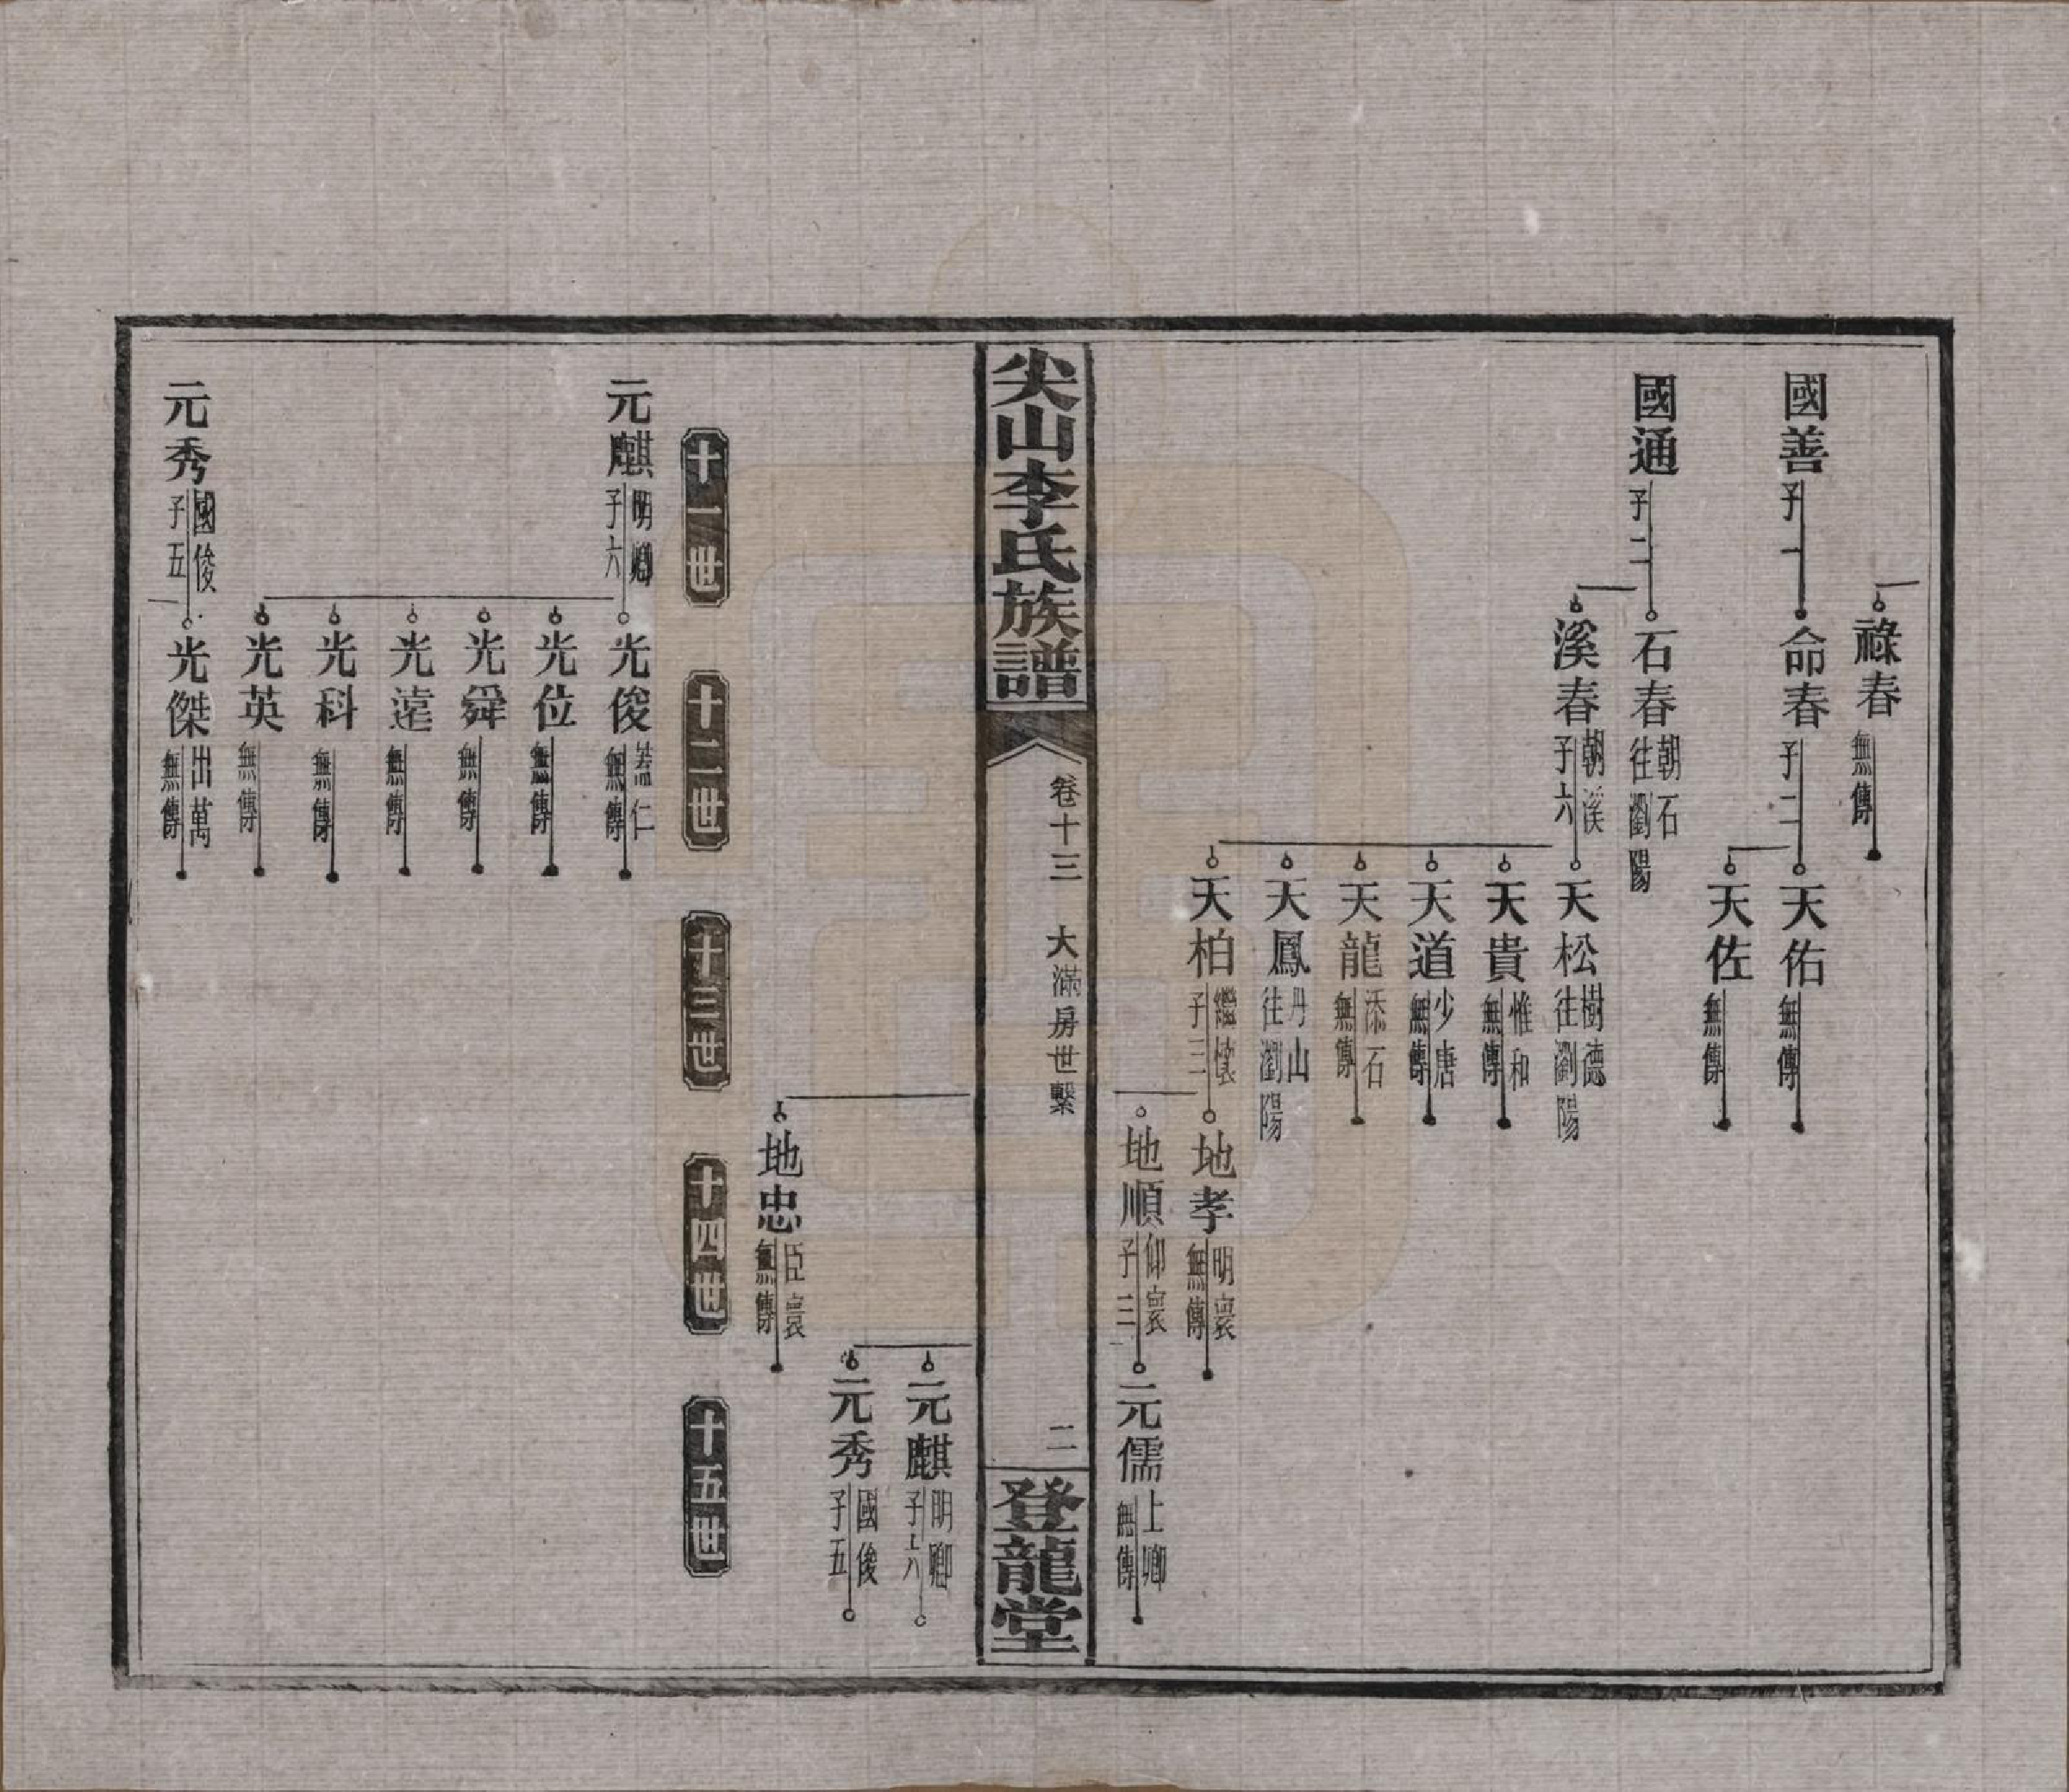 祿春 無傳
國善 子一
命春 子二
天佑 無傳
天佐 無傳
國通 子二
石春 朝石 往瀏陽
溪春 朝溪 子六
天松 樹德 往瀏陽
天貴 惟和 無傳
天道 少唐 無傳
天龍 添石 無傳
天鳳 丹山 往瀏陽
天柏 繼懷 子三
地孝 明寰 無傳
地順 仰寰 子三
元儒 上卿 無傳
尖山李氏族譜
卷十三 大滿房世繫
二
登龍堂
元麒 明卿 子六
元秀 國俊 子五
地忠 臣寰 無傳
十一世
十二世
十三世
十四世
十五世
元麒 明卿 子六
光俊 蓋仁 無傳
光位 無傳
光舜 無傳
光遠 無傳
光科 無傳
光英 無傳
元秀 國俊 子五
光傑 出萬 無傳